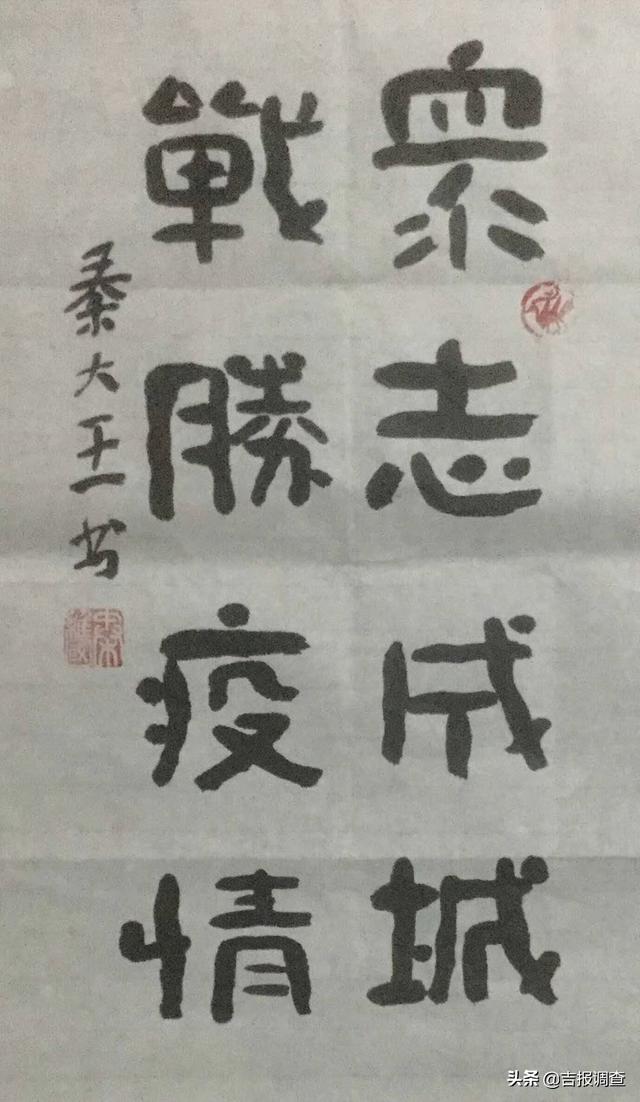 眾志成城
戰勝疫情
秦大王一书
头条 @吉报调查